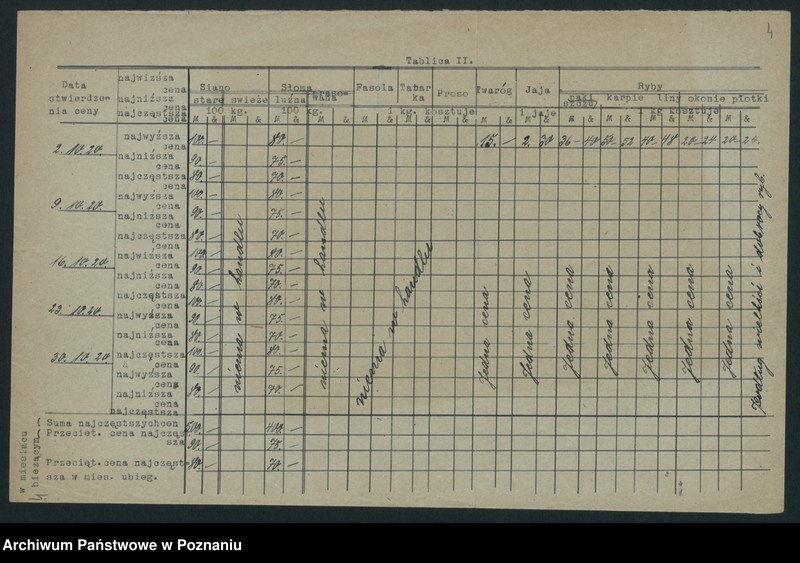 4
Tablica II.
Data stwierdzenia ceny
najwiższa cena
najniższa cena
najczęstsza cena
Siano
stare świeże
100 kg.
Słoma
luźna prasowana
100 kg.
Fasola Tatarka Proso
1 kg. kosztuje
Twaróg
Jaja
1 jaje
Ryby
karpie liny okonie płotki
1 kg kosztuje
2. 10. 20. najwyższa cena 100. — 80. — 15. — 2. 30 36 — 40 50 — 52 40 — 48 20 — 24 20 — 24.
najniższa cena 90. — 75. —
najczęstsza cena 80. — 70. —
9. 10. 20. najwyższa cena 100. — 80. —
najniższa cena 90. — 75. —
najczęstsza cena 80. — 70. —
16. 10. 20. najwiższa cena 100. — 80. —
najniższa cena 90. — 75. —
najczęstsza cena 80. — 70. —
23. 10. 20. najwyższa cena 100. — 80. —
najniższa cena 90. — 75. —
najczęstsza cena 80. — 70. —
30. 10. 20. najwyższa cena 100. — 80. —
najniższa cena 90. — 75. —
najczęstsza 80. — 70. —
niema w handlu
niema w handlu
niema w handlu
Jedna cena
Jedna cena
Jedna cena
Jedna cena
Jedna cena
Jedna cena
Jedna cena
Według wielkości i dobroci ryb.
w miesiącu bieżącym
Suma najczęstszych cen 500. — 400. —
Przeciet. cena najczęstsza 90. — 75. —
Przecięt. cena najczęstsza w mies. ubieg. 80. — 70. —
Archiwum Państwowe w Poznaniu